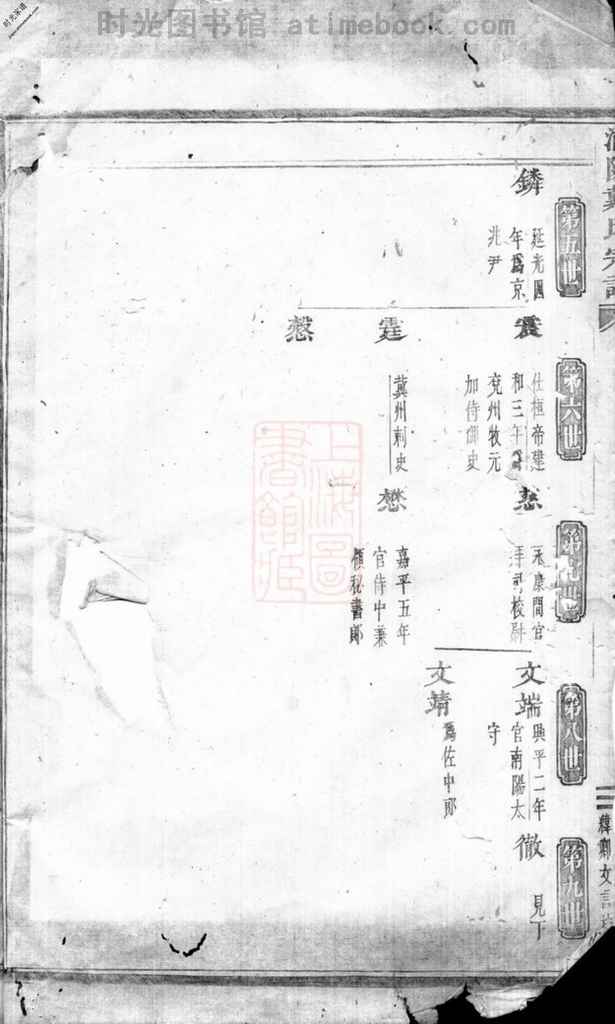 时光图书馆 atimebook.com
第五世
鏻
延光四
年爲京
兆尹
第六世
震
仕桓帝建
和三年
兖州牧元
加侍御史
霆
冀州刺史
懯
第七世
永康間官
校尉
懋
嘉平五年
官侍中兼
領秘書郎
第八世
文端
興平二年
官南陽太
守
文靖
爲佐中郎
第九世
徹
見下
上海圖
書館藏